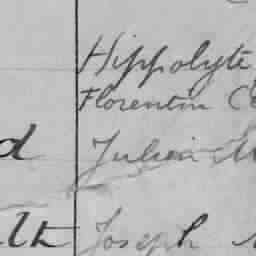 Hippolyte
Florentin
d Julien M
lth Joseph